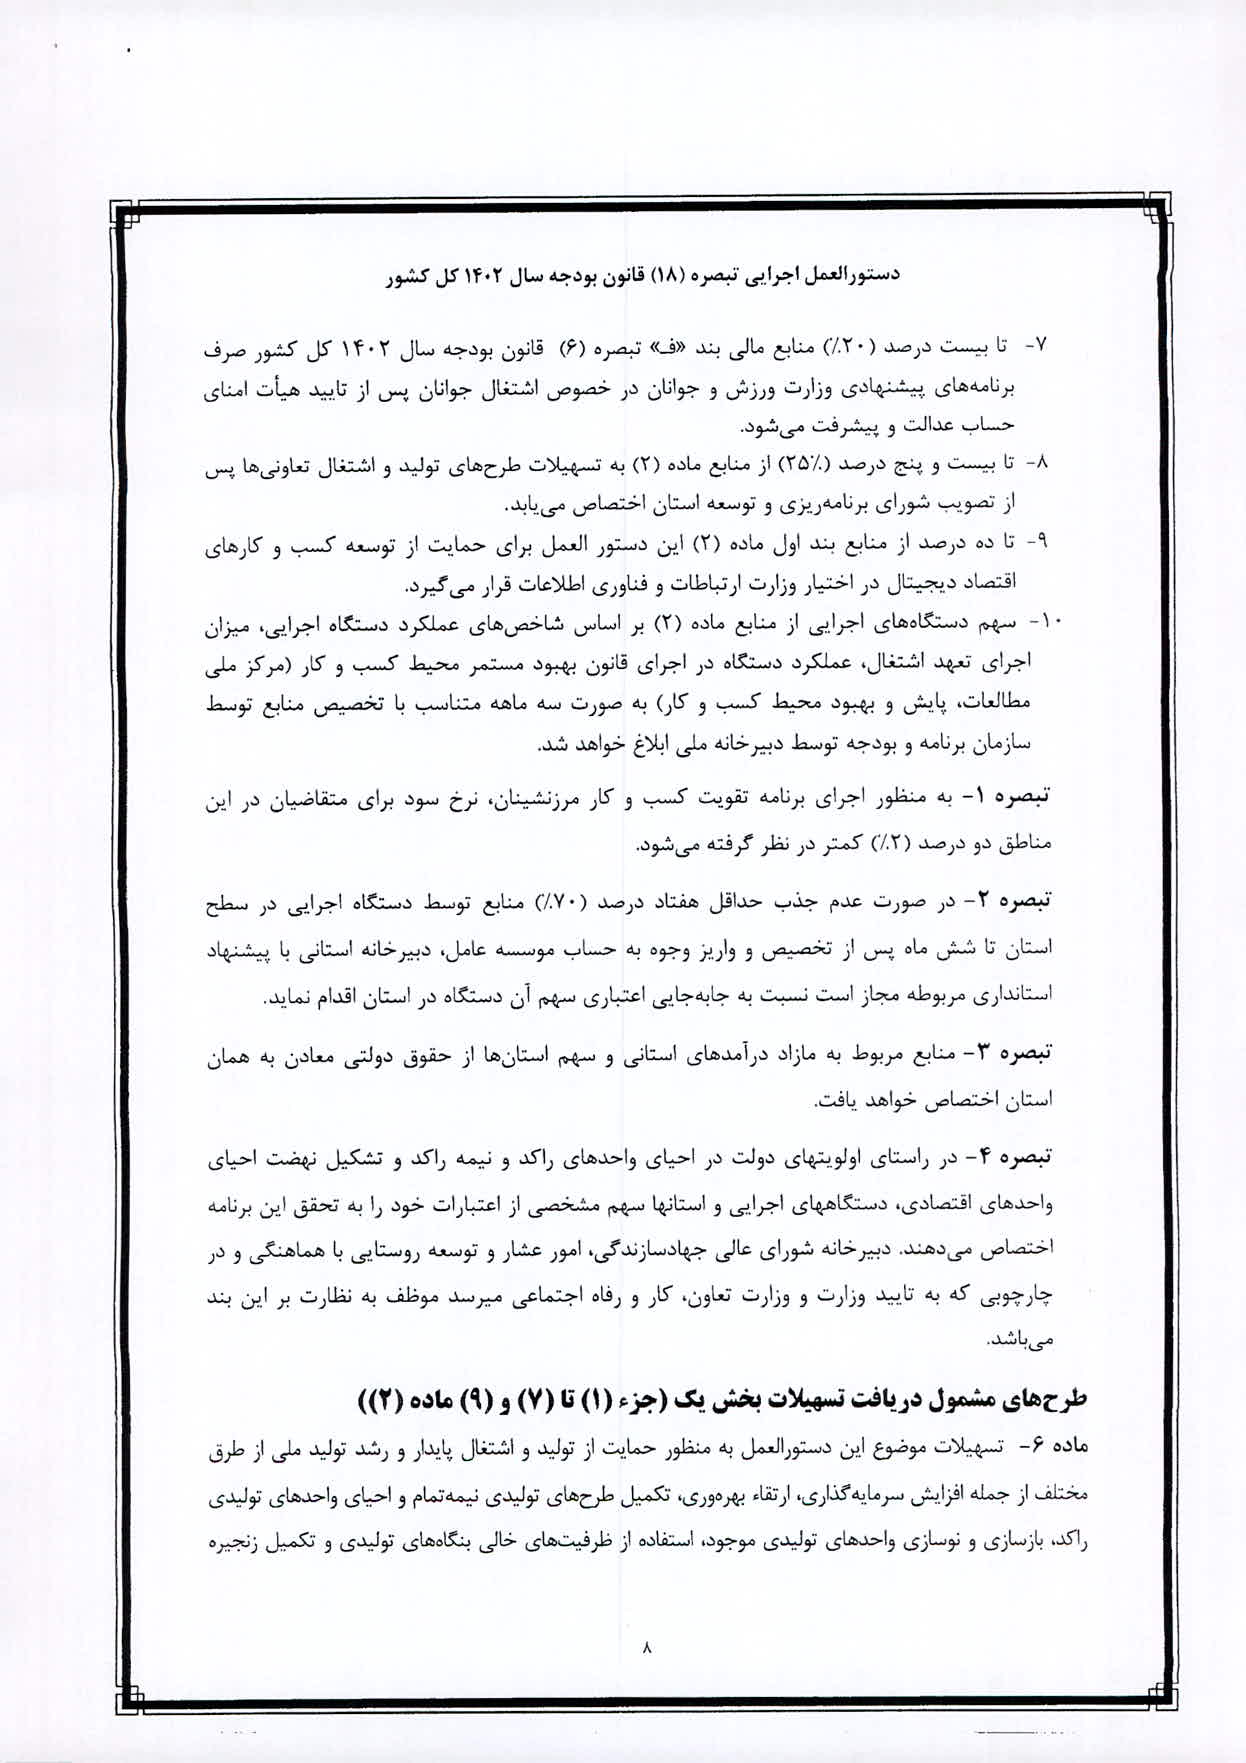 دستورالعمل اجرایی تبصره (۱۸) قانون بودجه سال ۱۴۰۲ کل کشور
۷- تا بیست درصد (۲۰٪) منابع مالی بند «ف» تبصره (۶) قانون بودجه سال ۱۴۰۲ کل کشور صرف
برنامه‌های پیشنهادی وزارت ورزش و جوانان در خصوص اشتغال جوانان پس از تایید هیأت امنای
حساب عدالت و پیشرفت می‌شود.
۸- تا بیست و پنج درصد (۲۵٪) از منابع ماده (۲) به تسهیلات طرح‌های تولید و اشتغال تعاونی‌ها پس
از تصویب شورای برنامه‌ریزی و توسعه استان اختصاص می‌یابد.
۹- تا ده درصد از منابع بند اول ماده (۲) این دستور العمل برای حمایت از توسعه کسب و کارهای
اقتصاد دیجیتال در اختیار وزارت ارتباطات و فناوری اطلاعات قرار می‌گیرد.
۱۰- سهم دستگاه‌های اجرایی از منابع ماده (۲) بر اساس شاخص‌های عملکرد دستگاه اجرایی، میزان
اجرای تعهد اشتغال، عملکرد دستگاه در اجرای قانون بهبود مستمر محیط کسب و کار (مرکز ملی
مطالعات، پایش و بهبود محیط کسب و کار) به صورت سه ماهه متناسب با تخصیص منابع توسط
سازمان برنامه و بودجه توسط دبیرخانه ملی ابلاغ خواهد شد.
تبصره ۱- به منظور اجرای برنامه تقویت کسب و کار مرزنشینان، نرخ سود برای متقاضیان در این
مناطق دو درصد (۲٪) کمتر در نظر گرفته می‌شود.
تبصره ۲- در صورت عدم جذب حداقل هفتاد درصد (۷۰٪) منابع توسط دستگاه اجرایی در سطح
استان تا شش ماه پس از تخصیص و واریز وجوه به حساب موسسه عامل، دبیرخانه استانی با پیشنهاد
استانداری مربوطه مجاز است نسبت به جابه‌جایی اعتباری سهم آن دستگاه در استان اقدام نماید.
تبصره ۳- منابع مربوط به مازاد درآمدهای استانی و سهم استان‌ها از حقوق دولتی معادن به همان
استان اختصاص خواهد یافت.
تبصره ۴- در راستای اولویتهای دولت در احیای واحدهای راکد و نیمه راکد و تشکیل نهضت احیای
واحدهای اقتصادی، دستگاههای اجرایی و استانها سهم مشخصی از اعتبارات خود را به تحقق این برنامه
اختصاص می‌دهند. دبیرخانه شورای عالی جهادسازندگی، امور عشار و توسعه روستایی با هماهنگی و در
چارچوبی که به تایید وزارت و وزارت تعاون، کار و رفاه اجتماعی میرسد موظف به نظارت بر این بند
می‌باشد.
طرح‌های مشمول دریافت تسهیلات بخش یک (جزء (۱) تا (۷) و (۹) ماده (۲))
ماده ۶- تسهیلات موضوع این دستورالعمل به منظور حمایت از تولید و اشتغال پایدار و رشد تولید ملی از طرق
مختلف از جمله افزایش سرمایه‌گذاری، ارتقاء بهره‌وری، تکمیل طرح‌های تولیدی نیمه‌تمام و احیای واحدهای تولیدی
راکد، بازسازی و نوسازی واحدهای تولیدی موجود، استفاده از ظرفیت‌های خالی بنگاه‌های تولیدی و تکمیل زنجیره
۸